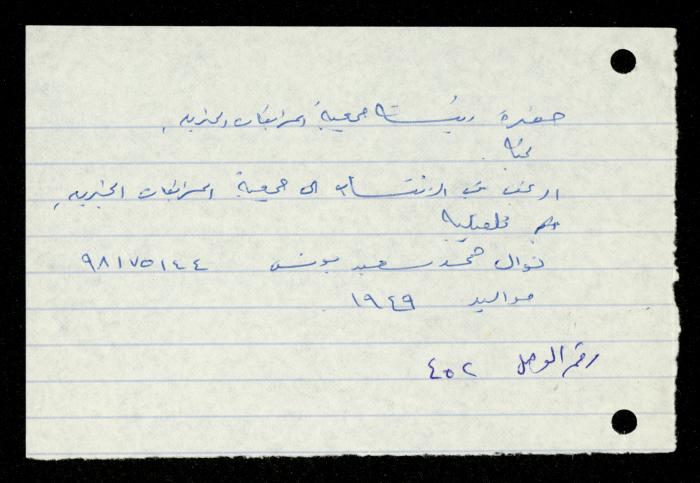 حضرة رئيسة جمعية المرابطات الخيرية
تحية
ارغب في الانتساب الى جمعية المرابطات الخيرية
قلقيلية
نوال محمد سعيد يونس ٩٨١٧٥١٤٤
مواليد ١٩٤٩
رقم الوصل ٤٥٢